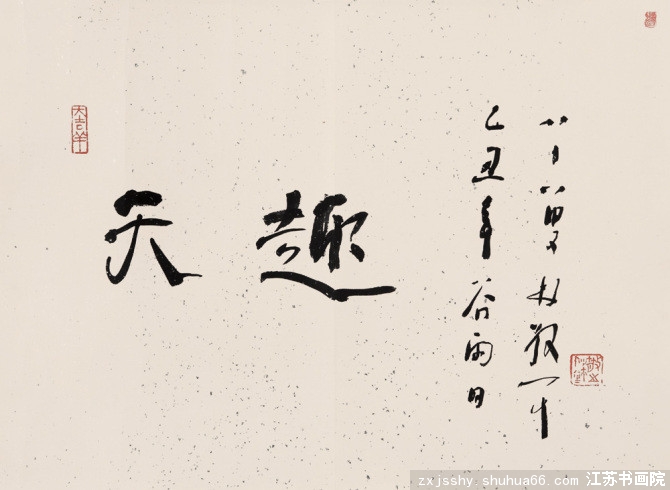 大吉羊
天趣
乙丑年谷雨日
八十八叟林散耳
zxjsshy.shuhua66.com 江苏书画院